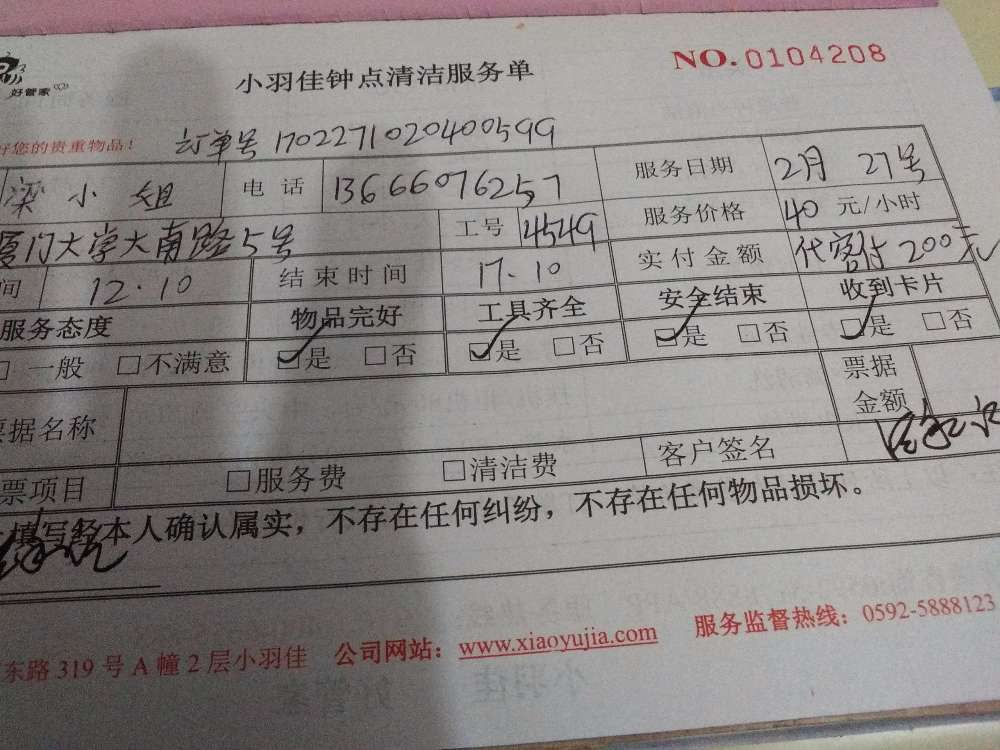 好管家
小羽佳钟点清洁服务单
NO.0104208
好您的贵重物品!
订单号 1702271020400599
梁小姐 电话 13666076257 服务日期 2月 27号
厦门大学大南路5号 工号 4549 服务价格 40 元/小时
间 12.10 结束时间 17.10 实付金额 代客付200元
服务态度 物品完好 工具齐全 安全结束 收到卡片
□ 一般 □不满意 ☑是 □否 ☑是 □否 ☑是 □否 ☑是 □否
票据名称 票据金额
票项目 □服务费 □清洁费 客户签名
填写经本人确认属实,不存在任何纠纷,不存在任何物品损坏。
东路 319 号 A 幢 2 层小羽佳 公司网站:www.xiaoyujia.com 服务监督热线:0592-5888123